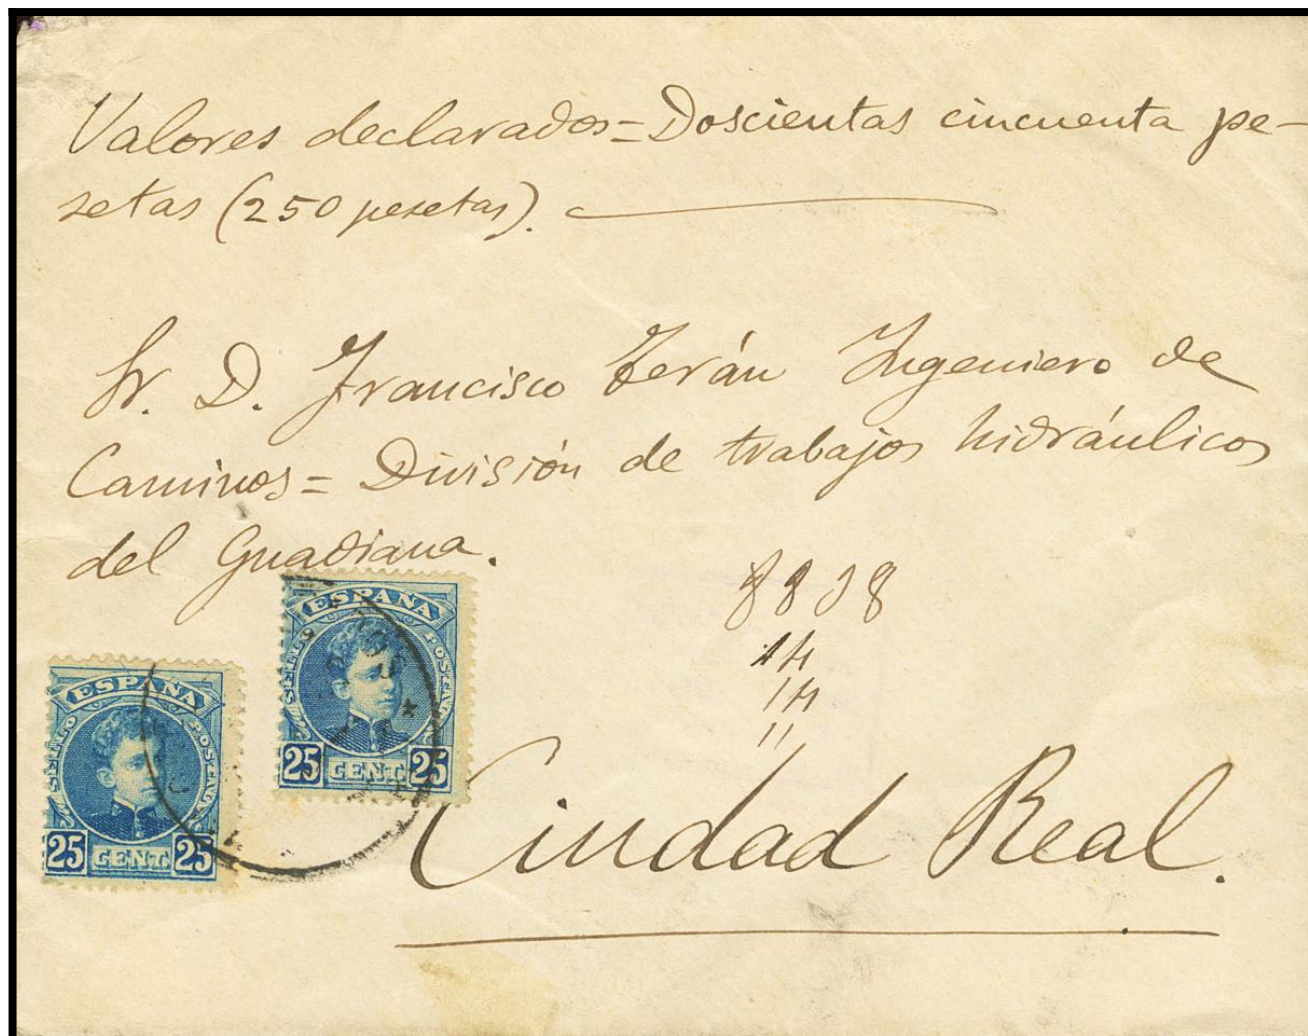 Valores declarados = Doscientas cincuenta pe-
setas (250 pesetas).
Sr. D. Francisco Terán Ingeniero de
Caminos = División de trabajos hidráulicos
del Guadiana.
ESPAÑA
SELLO POSTAL
25 CENT. 25
ESPAÑA
SELLO POSTAL
25 CENT. 25
Ciudad Real.